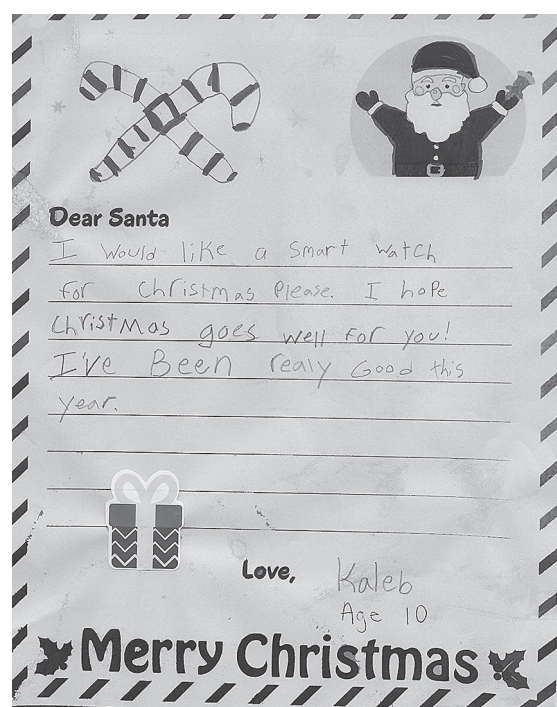 Dear Santa
I would like a Smart watch
for Christmas Please. I hope
Christmas goes well for you!
I've Been realy Good this
year.
Love, Kaleb
Age 10
Merry Christmas